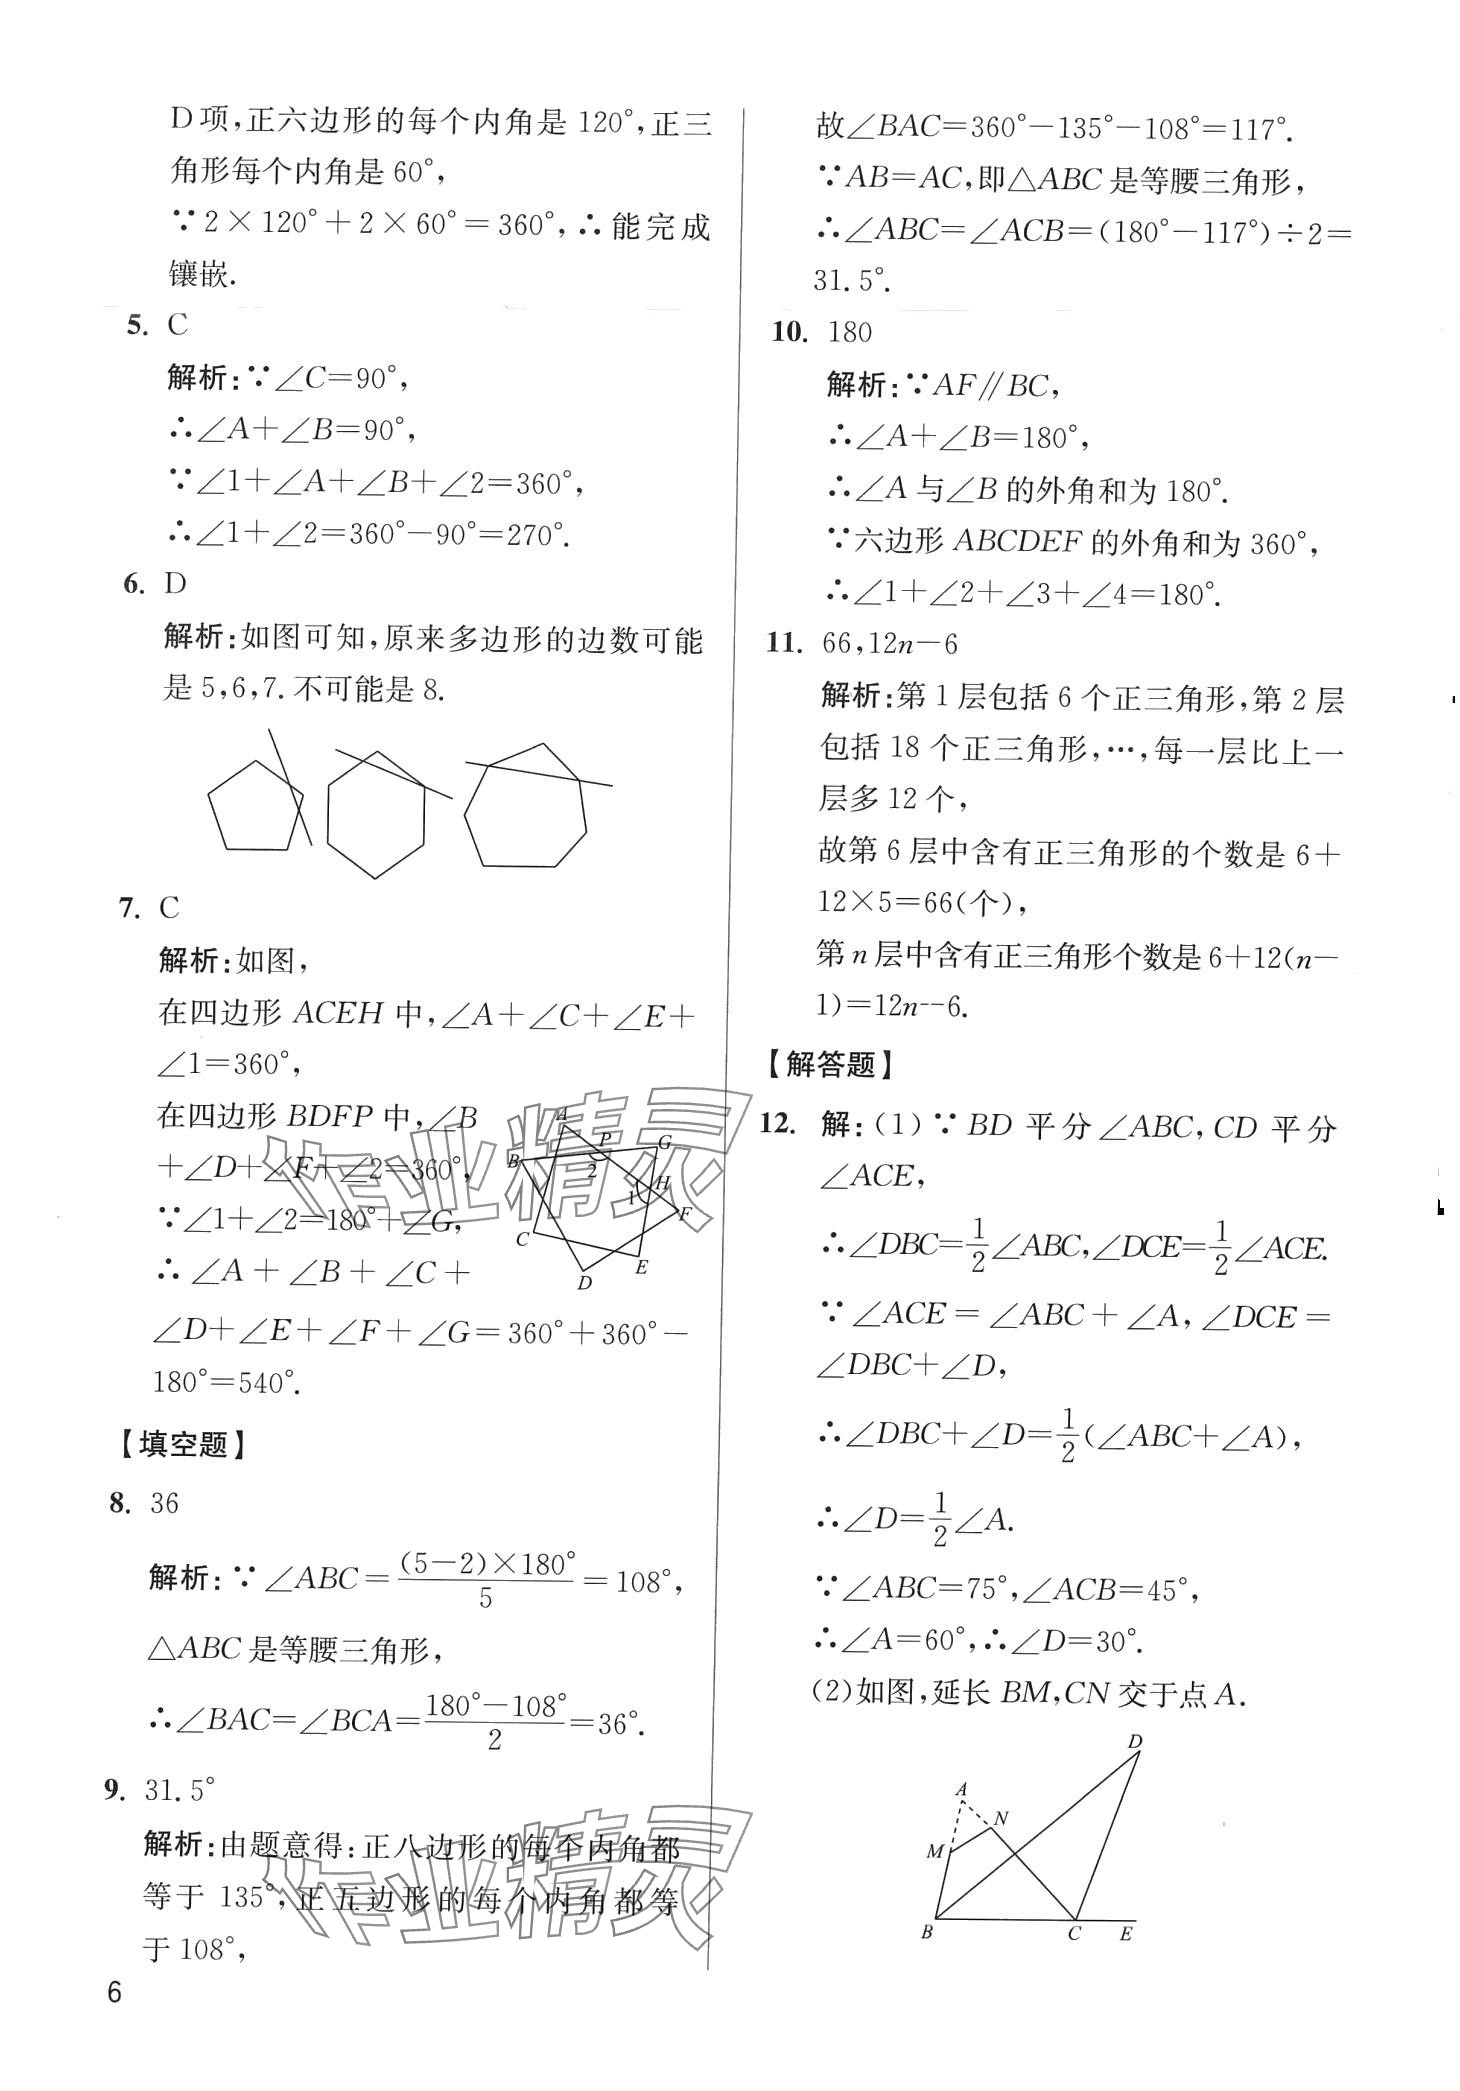 D项,正六边形的每个内角是 120°,正三
角形每个内角是 60°,
∵2×120°+2×60°=360°,∴能完成
镶嵌.
5. C
解析:∵∠C=90°,
∴∠A+∠B=90°,
∵∠1+∠A+∠B+∠2=360°,
∴∠1+∠2=360°-90°=270°.
6. D
解析:如图可知,原来多边形的边数可能
是 5,6,7. 不可能是 8.
7. C
解析:如图,
在四边形 ACEH 中,∠A+∠C+∠E+
∠1=360°,
在四边形 BDFP 中,∠B
+∠D+∠F+∠2=360°,
∵∠1+∠2=180°+∠G,
∴∠A+∠B+∠C+
∠D+∠E+∠F+∠G=360°+360°-
180°=540°.
A
P
G
B
2
H
1
F
C
E
D
【填空题】
8. 36
解析:∵∠ABC=(5-2)×180°/5=108°,
△ABC 是等腰三角形,
∴∠BAC=∠BCA=180°-108°/2=36°.
9. 31.5°
解析:由题意得:正八边形的每个内角都
等于 135°,正五边形的每个内角都等
于 108°,
作业精灵
作业精灵
6
故∠BAC=360°-135°-108°=117°.
∵AB=AC,即△ABC 是等腰三角形,
∴∠ABC=∠ACB=(180°-117°)÷2=
31.5°.
10. 180
解析:∵AF∥BC,
∴∠A+∠B=180°,
∴∠A 与∠B 的外角和为 180°.
∵六边形 ABCDEF 的外角和为 360°,
∴∠1+∠2+∠3+∠4=180°.
11. 66,12n-6
解析:第 1 层包括 6 个正三角形,第 2 层
包括 18 个正三角形,…,每一层比上一
层多 12 个,
故第 6 层中含有正三角形的个数是 6+
12×5=66(个),
第 n 层中含有正三角形个数是 6+12(n-
1)=12n-6.
【解答题】
12. 解:(1)∵BD 平分∠ABC,CD 平分
∠ACE,
∴∠DBC=1/2∠ABC,∠DCE=1/2∠ACE.
∵∠ACE=∠ABC+∠A,∠DCE=
∠DBC+∠D,
∴∠DBC+∠D=1/2(∠ABC+∠A),
∴∠D=1/2∠A.
∵∠ABC=75°,∠ACB=45°,
∴∠A=60°,∴∠D=30°.
(2)如图,延长 BM,CN 交于点 A.
D
A
N
M
B
C
E